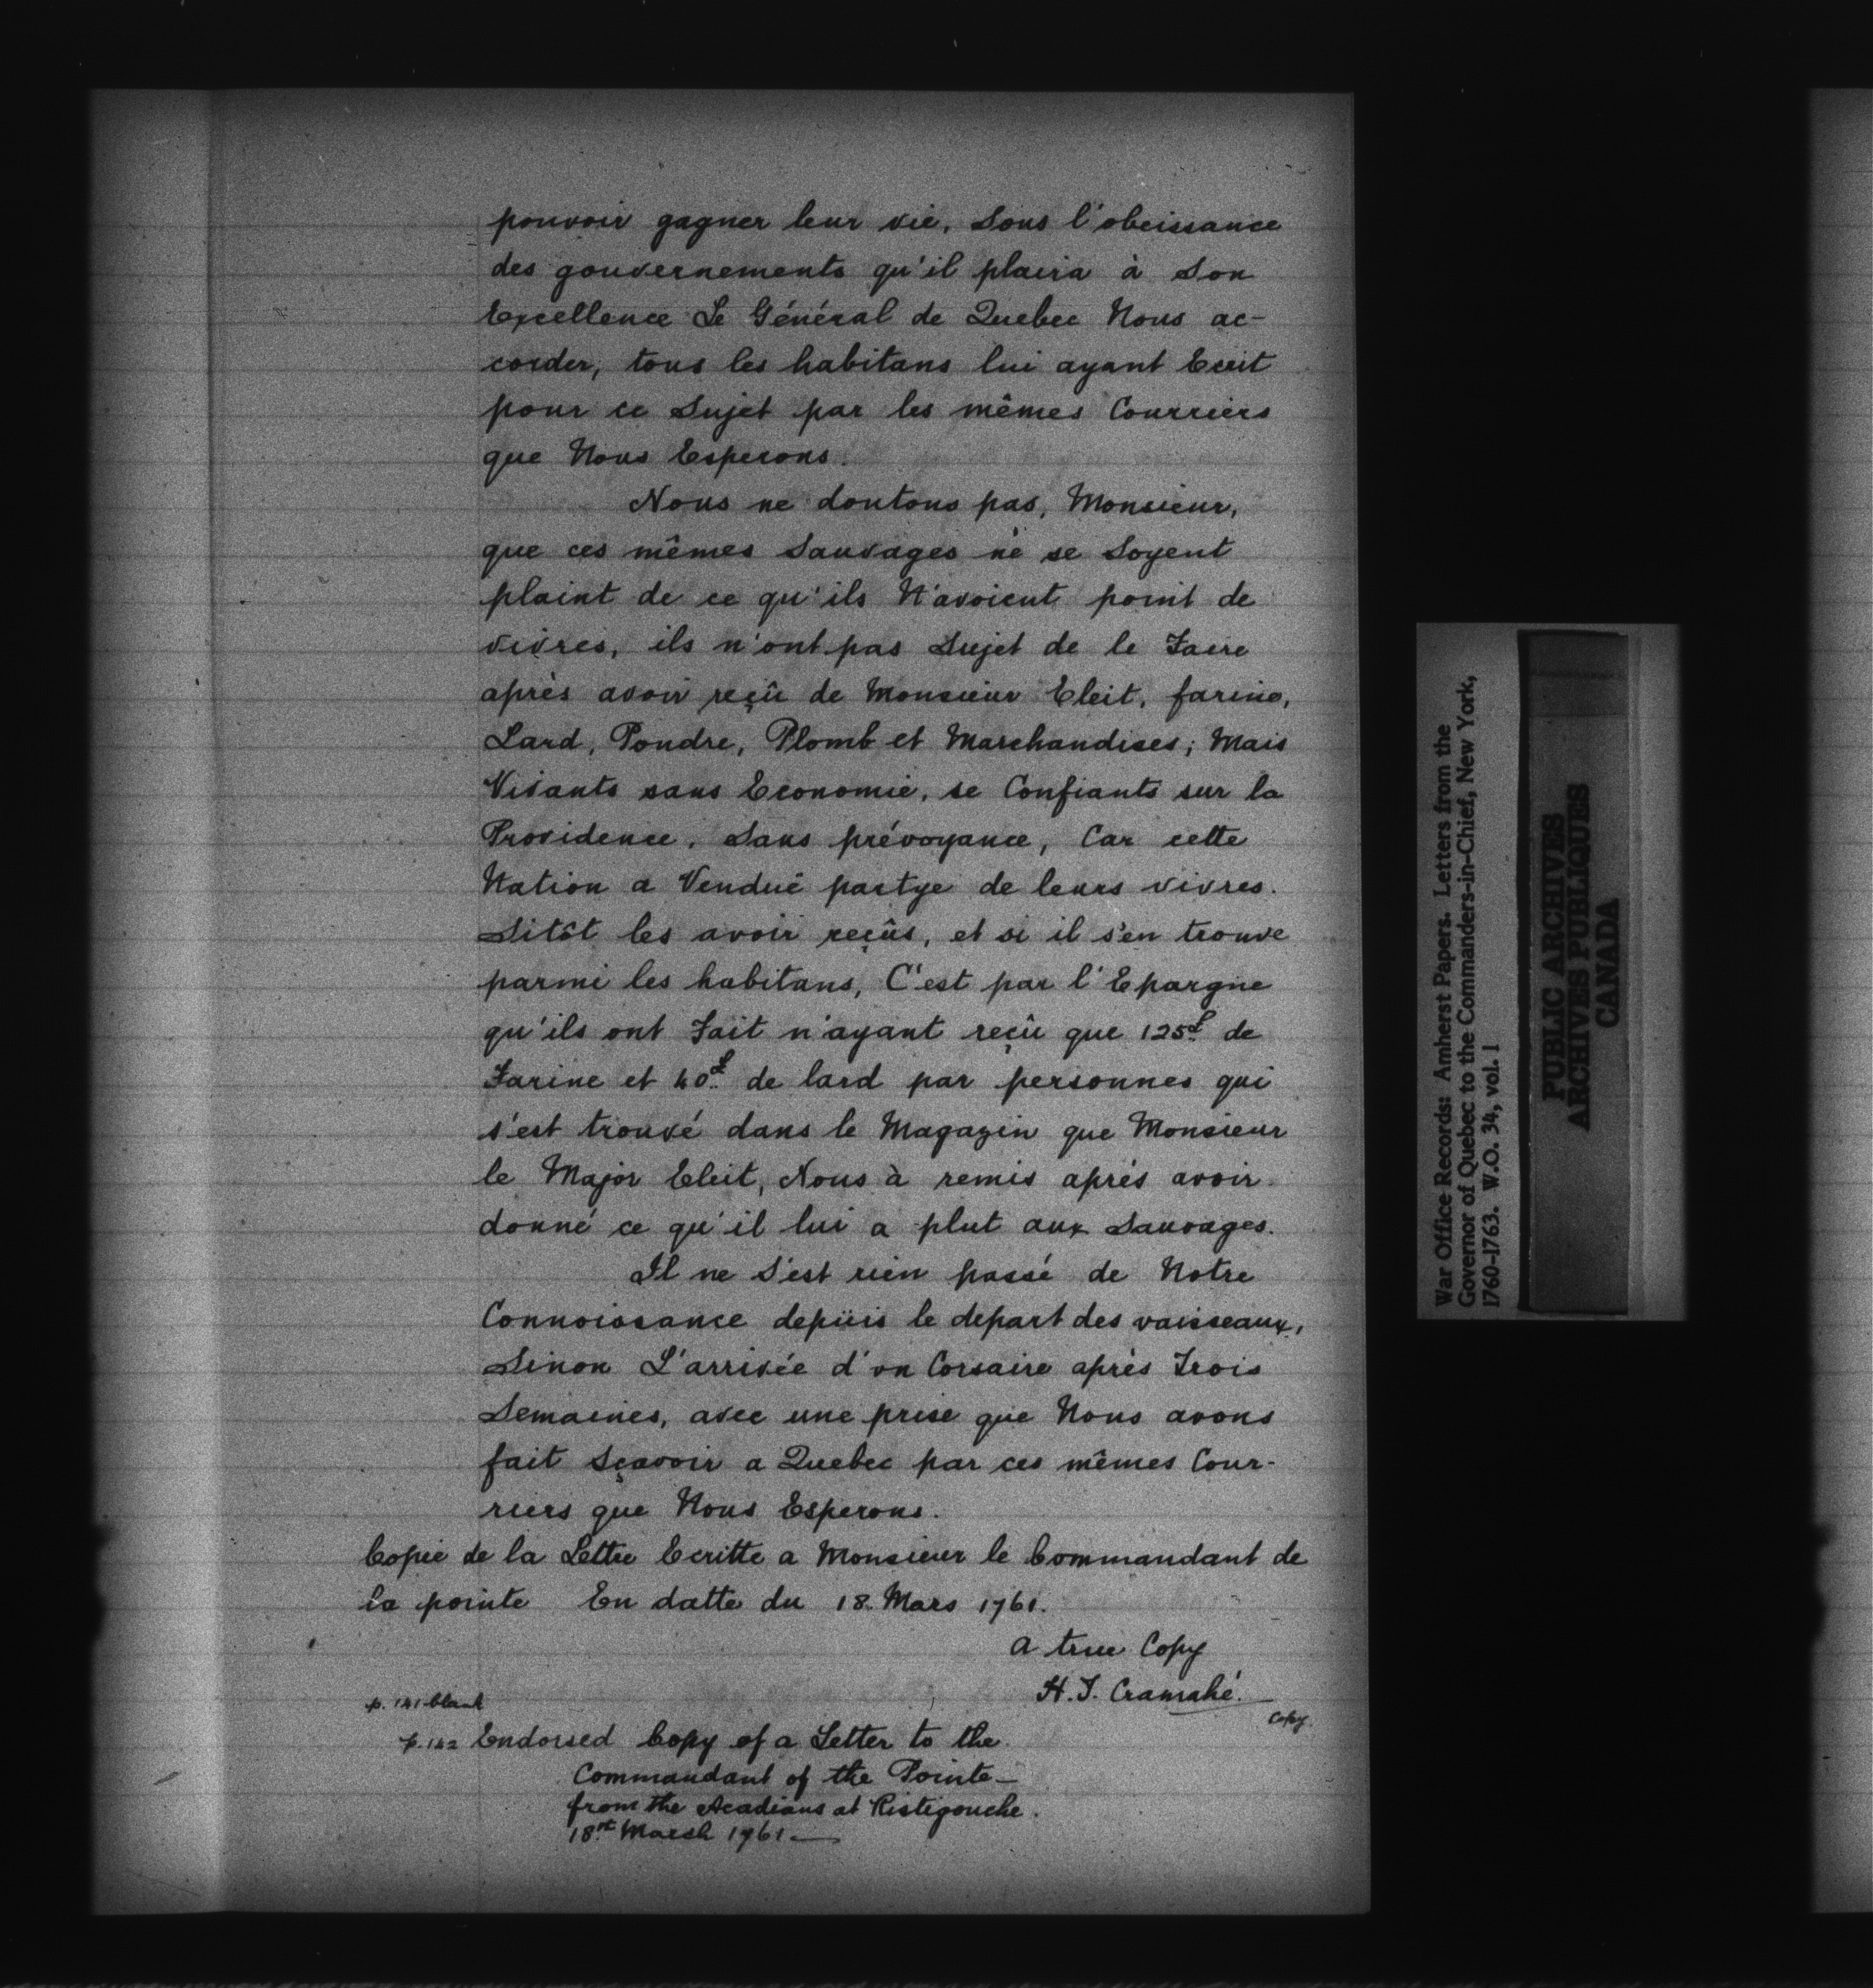 pouvoir gagner leur vie, Sous l'obeissance
des gouvernements qu'il plaira à Son
Excellence Le Général de Quebec Nous ac-
corder, tous les habitans lui ayant Ecrit
pour ce Sujet par les mêmes Courriers
que Nous Esperons.
Nous ne doutons pas, Monsieur,
que ces mêmes Sauvages ne se Soyent
plaint de ce qu'ils N'avoient point de
vivres, ils n'ont pas Sujet de le Faire
après avoir reçû de Monsieur Eleit, farine,
Lard, Poudre, Plomb et Marchandises; Mais
Vivants sans Economie, se Confiants sur la
Providence, Sans prévoyance, Car cette
Nation a Venduë partye de leurs vivres.
Sitôt les avoir reçûs, et si il s'en trouve
parmi les habitans, C'est par l'Epargne
qu'ils ont Fait n'ayant reçû que 125£ de
Farine et 40£ de lard par personnes qui
s'est trouvé dans le Magazin que Monsieur
le Major Eleit, Nous à remis après avoir
donné ce qu'il lui a plut aux Sauvages.
Il ne S'est rien passé de Notre
Connoissance depüis le depart des vaisseaux,
Sinon L'arrivée d'un Corsaire après Trois
Semaines, avec une prise que Nous avons
fait Sçavoir a Quebec par ces mêmes Cour-
riers que Nous Esperons.
Copie de la Lettre Ecritte a Monsieur le Commandant de
la pointe En datte du 18. Mars 1761.
a true Copy
H. T. Cramahé.
Copy.
p. 141 blank
p. 142 Endorsed Copy of a Letter to the
Commandant of the Pointe—
from the Acadians at Ristigouche.
18th March 1761.—
War Office Records: Amherst Papers. Letters from the
Governor of Quebec to the Commanders-in-Chief, New York,
1760-1763. W.O. 34, vol. 1
PUBLIC ARCHIVES
ARCHIVES PUBLIQUES
CANADA